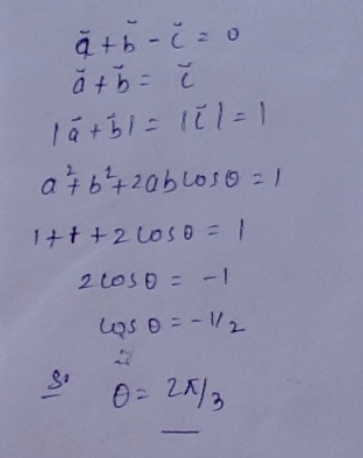 ă + b̆ - c̆ = 0
ă + b̆ = c̆
|ă + b̆| = |c̆| = 1
a² + b² + 2ab cos θ = 1
1 + 1 + 2 cos θ = 1
2 cos θ = -1
cos θ = -1/2
So θ = 2π/3